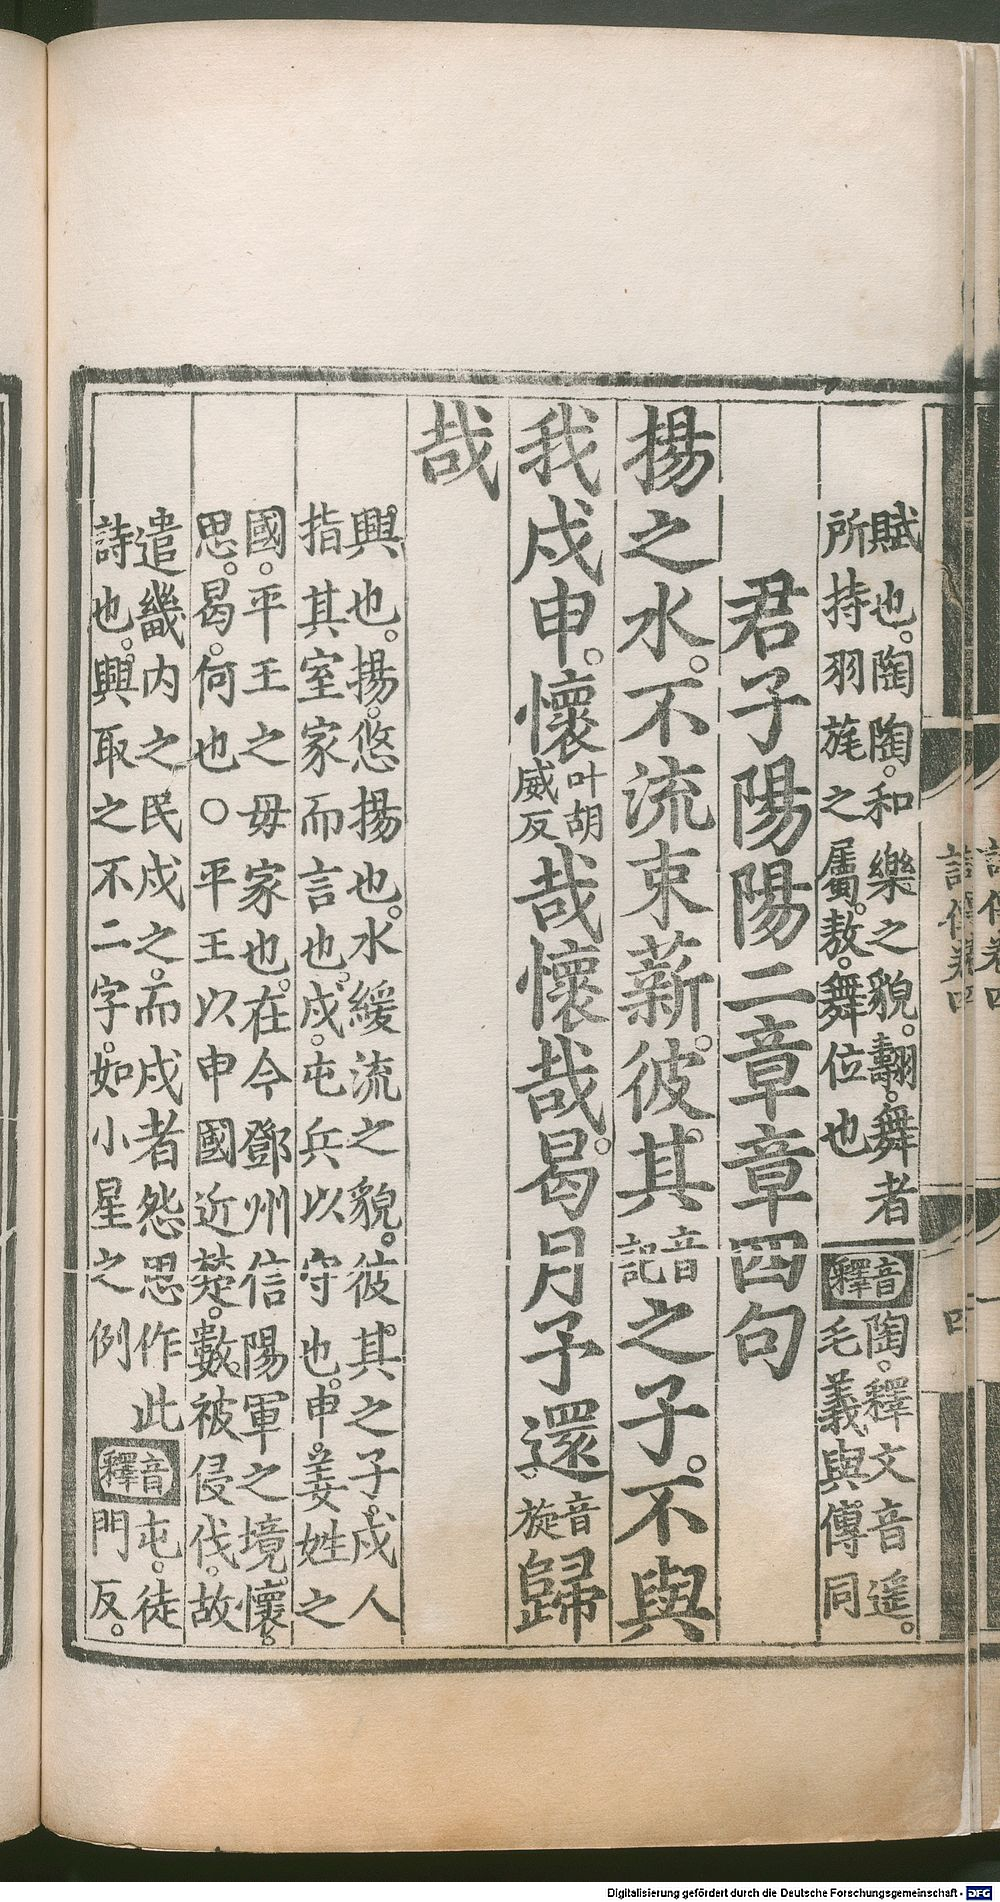 賦也。陶陶。和樂之貌。翿。舞者
所持羽旄之屬。敖。舞位也
音釋
陶。釋文音遥。
毛義與傳同
君子陽陽二章章四句
揚之水。不流束薪。彼其音記之子。不與
我戍申。懷叶胡威反哉懷哉。曷月予還音旋歸
哉
興也。揚。悠揚也。水緩流之貌。彼其之子。戍人
指其室家而言也。戍。屯兵以守也。申。姜姓之
國。平王之母家也。在今鄧州信陽軍之境。懷。
思。曷。何也〇平王以申國近楚。數被侵伐。故
遣畿内之民戍之。而戍者怨思作此
詩也。興取之不二字。如小星之例
音釋
屯。徒
門反。
Digitalisierung gefördert durch die Deutsche Forschungsgemeinschaft - DFG